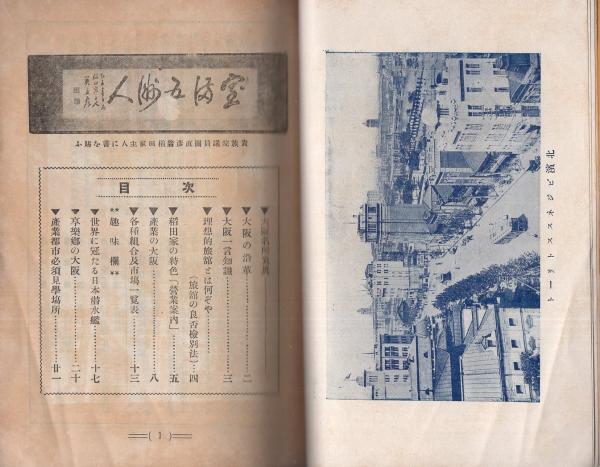 北濱ビジネスストリート
人 洲 五 満 室
貴族院議員 直彦 稲田家主人に書を賜ふ
目次
▼大阪名所寫眞
▼大阪の沿革………二
▼大阪一言知識………三
▼理想的旅館とは何ぞや………
(旅館の良否檢別法)…四
▼稻田家の特色「營業案内」………五
▼產業の大阪………八
▼各種組合及市場一覽表………十三
** 趣味欄 **
▼世界に冠たる日本潜水艦………十七
▼享樂鄉の大阪………二十
▼產業都市必須見學場所………廿一
(1)